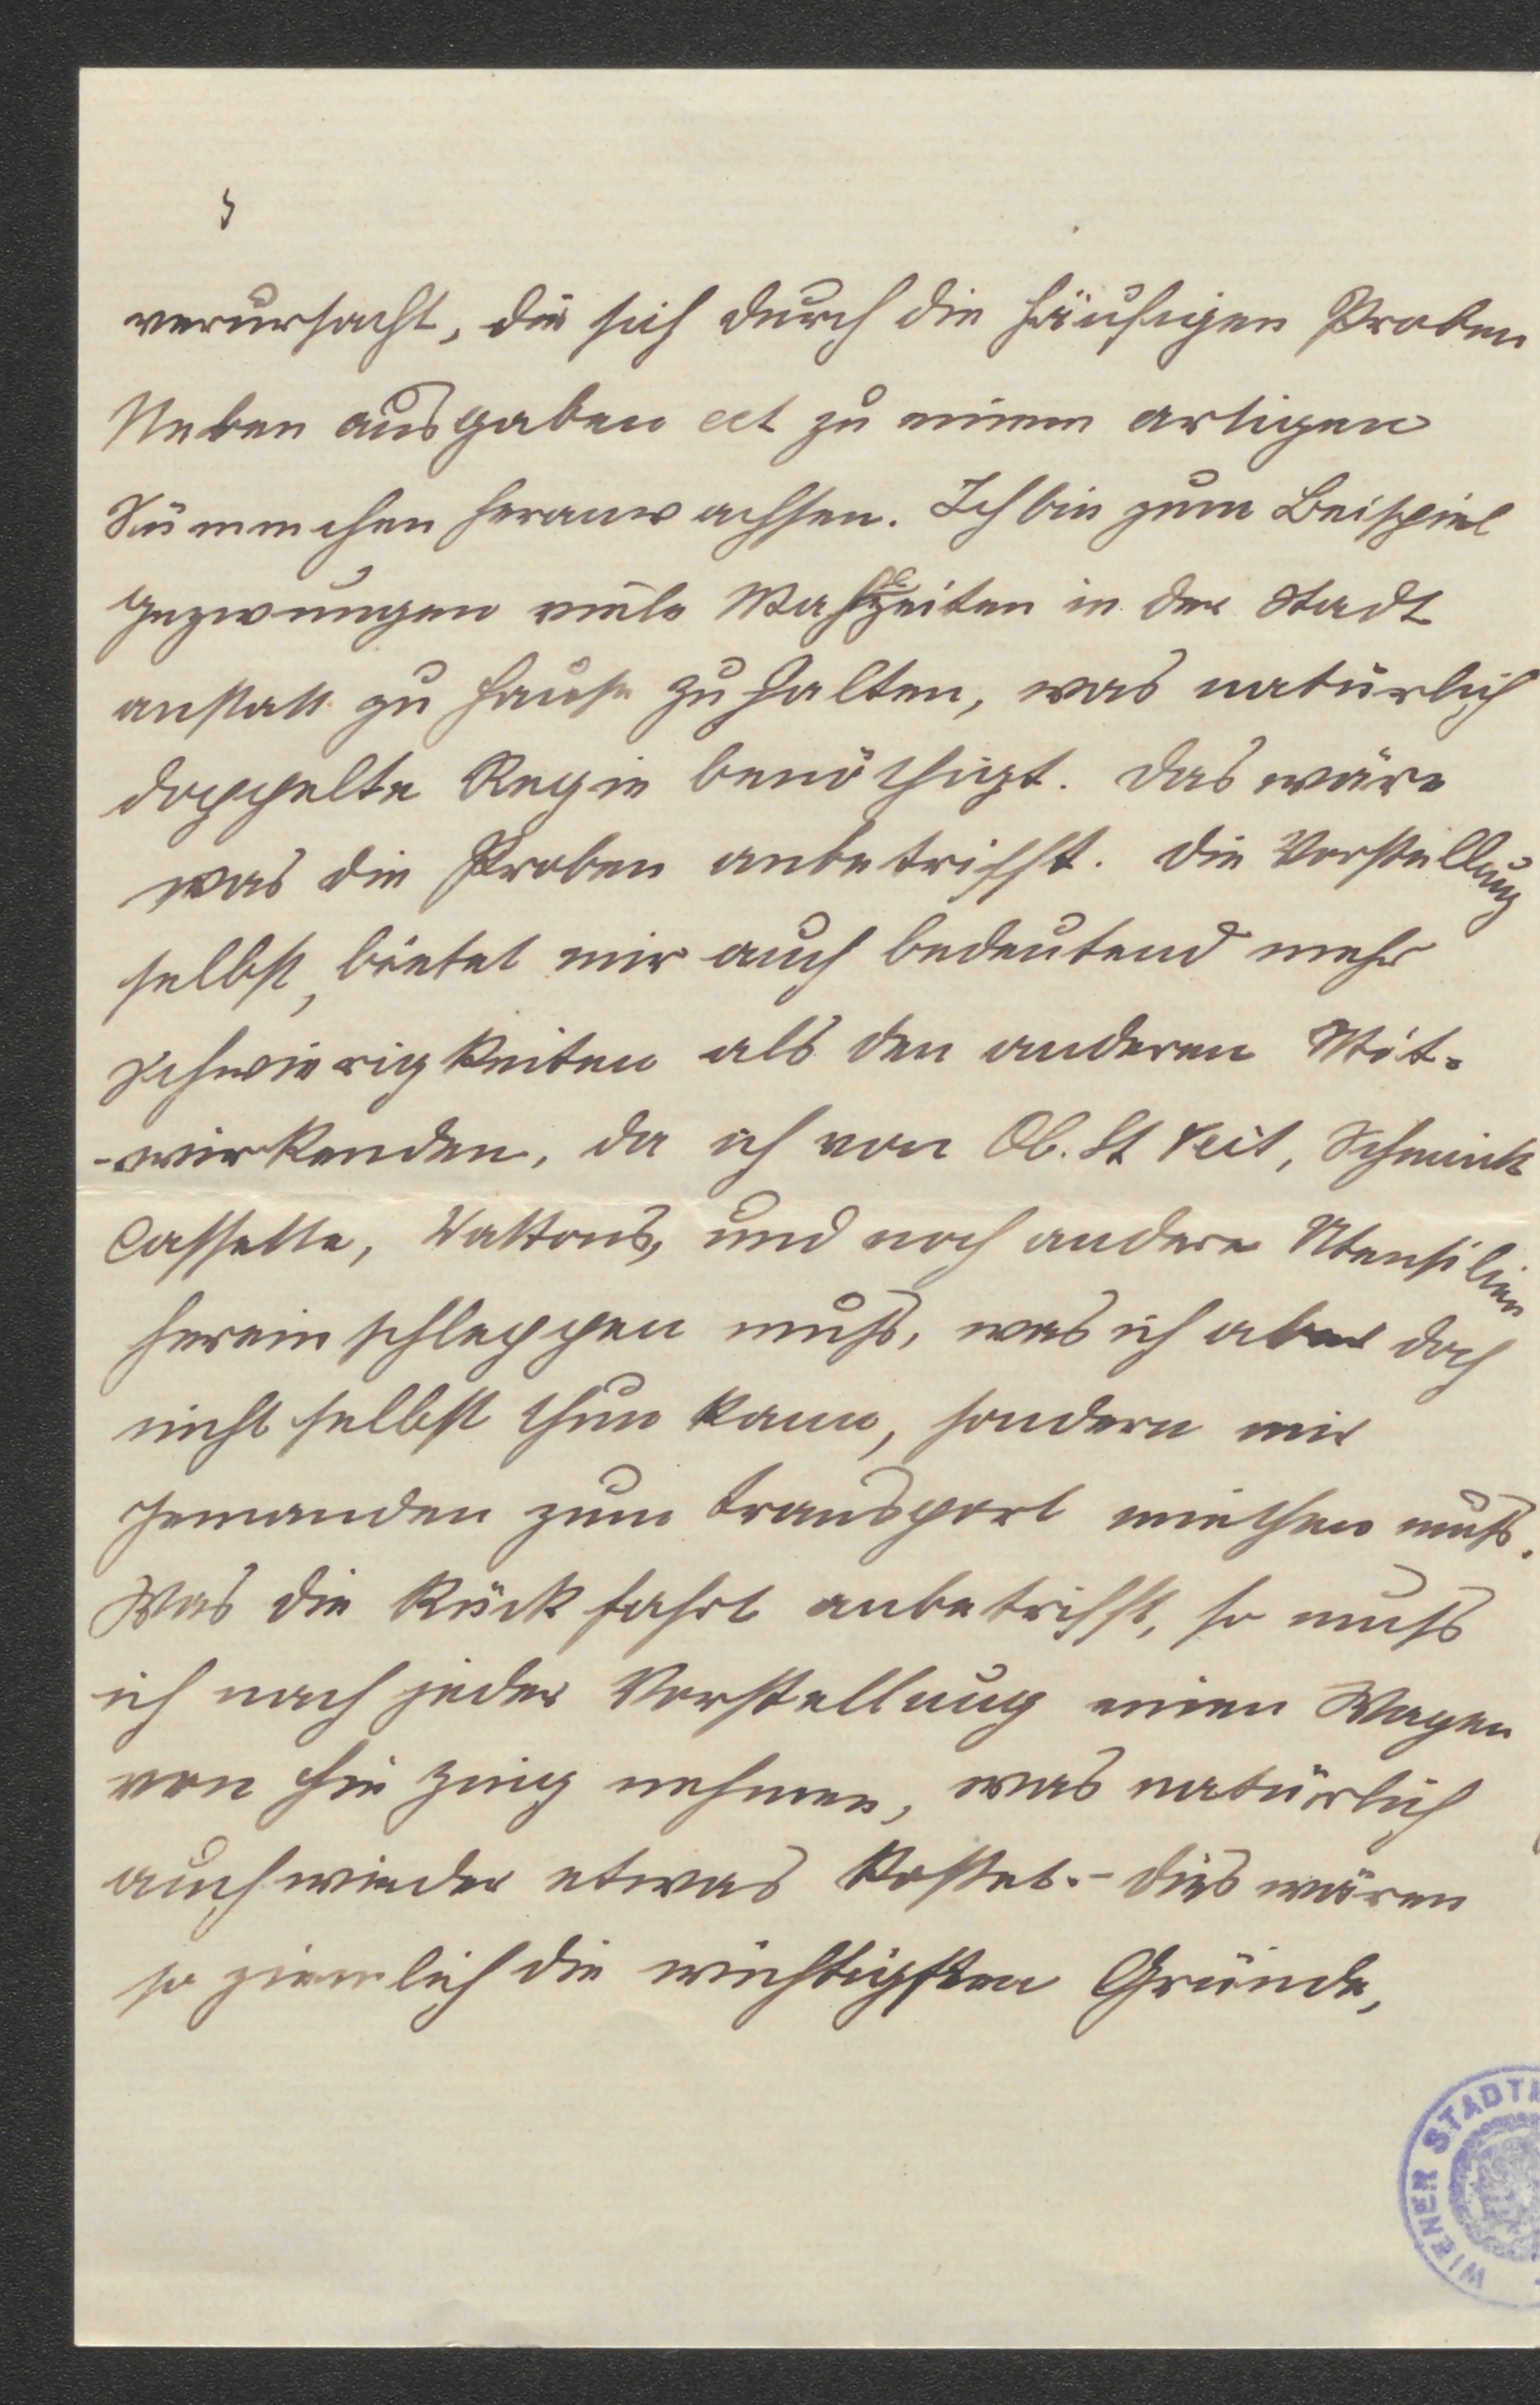 verursacht, die sich durch die häufigen Proben
Neben ausgaben ect zu einem artigen
Sümmchen heranwachsen. Ich bin zum Beispiel
gezwungen viele Mahlzeiten in der Stadt
anstatt zu Hause zu halten, was natürlich
doppelte Regie benöthigt. Das wäre
was die Proben anbetrifft. Die Vorstellung
selbst, bietet mir auch bedeutend mehr
Schwierigkeiten als den anderen Mit-
-wirkenden, da ich von Ob. St Veit, Schmink
Cassette, Wattons, und noch andere Utensilien
herein schleppen muß, was ich aber doch
nicht selbst thun kann, sondern mir
Jemanden zum Transport miethen muß.
Was die Rückfahrt anbetrifft, so muß
ich nach jeder Vorstellung einen Wagen
von Hie zing nehmen, was natürlich
auch wieder etwas kostet. - Dies wären
so ziemlich die wichtigsten Gründe,
WIENER STADT